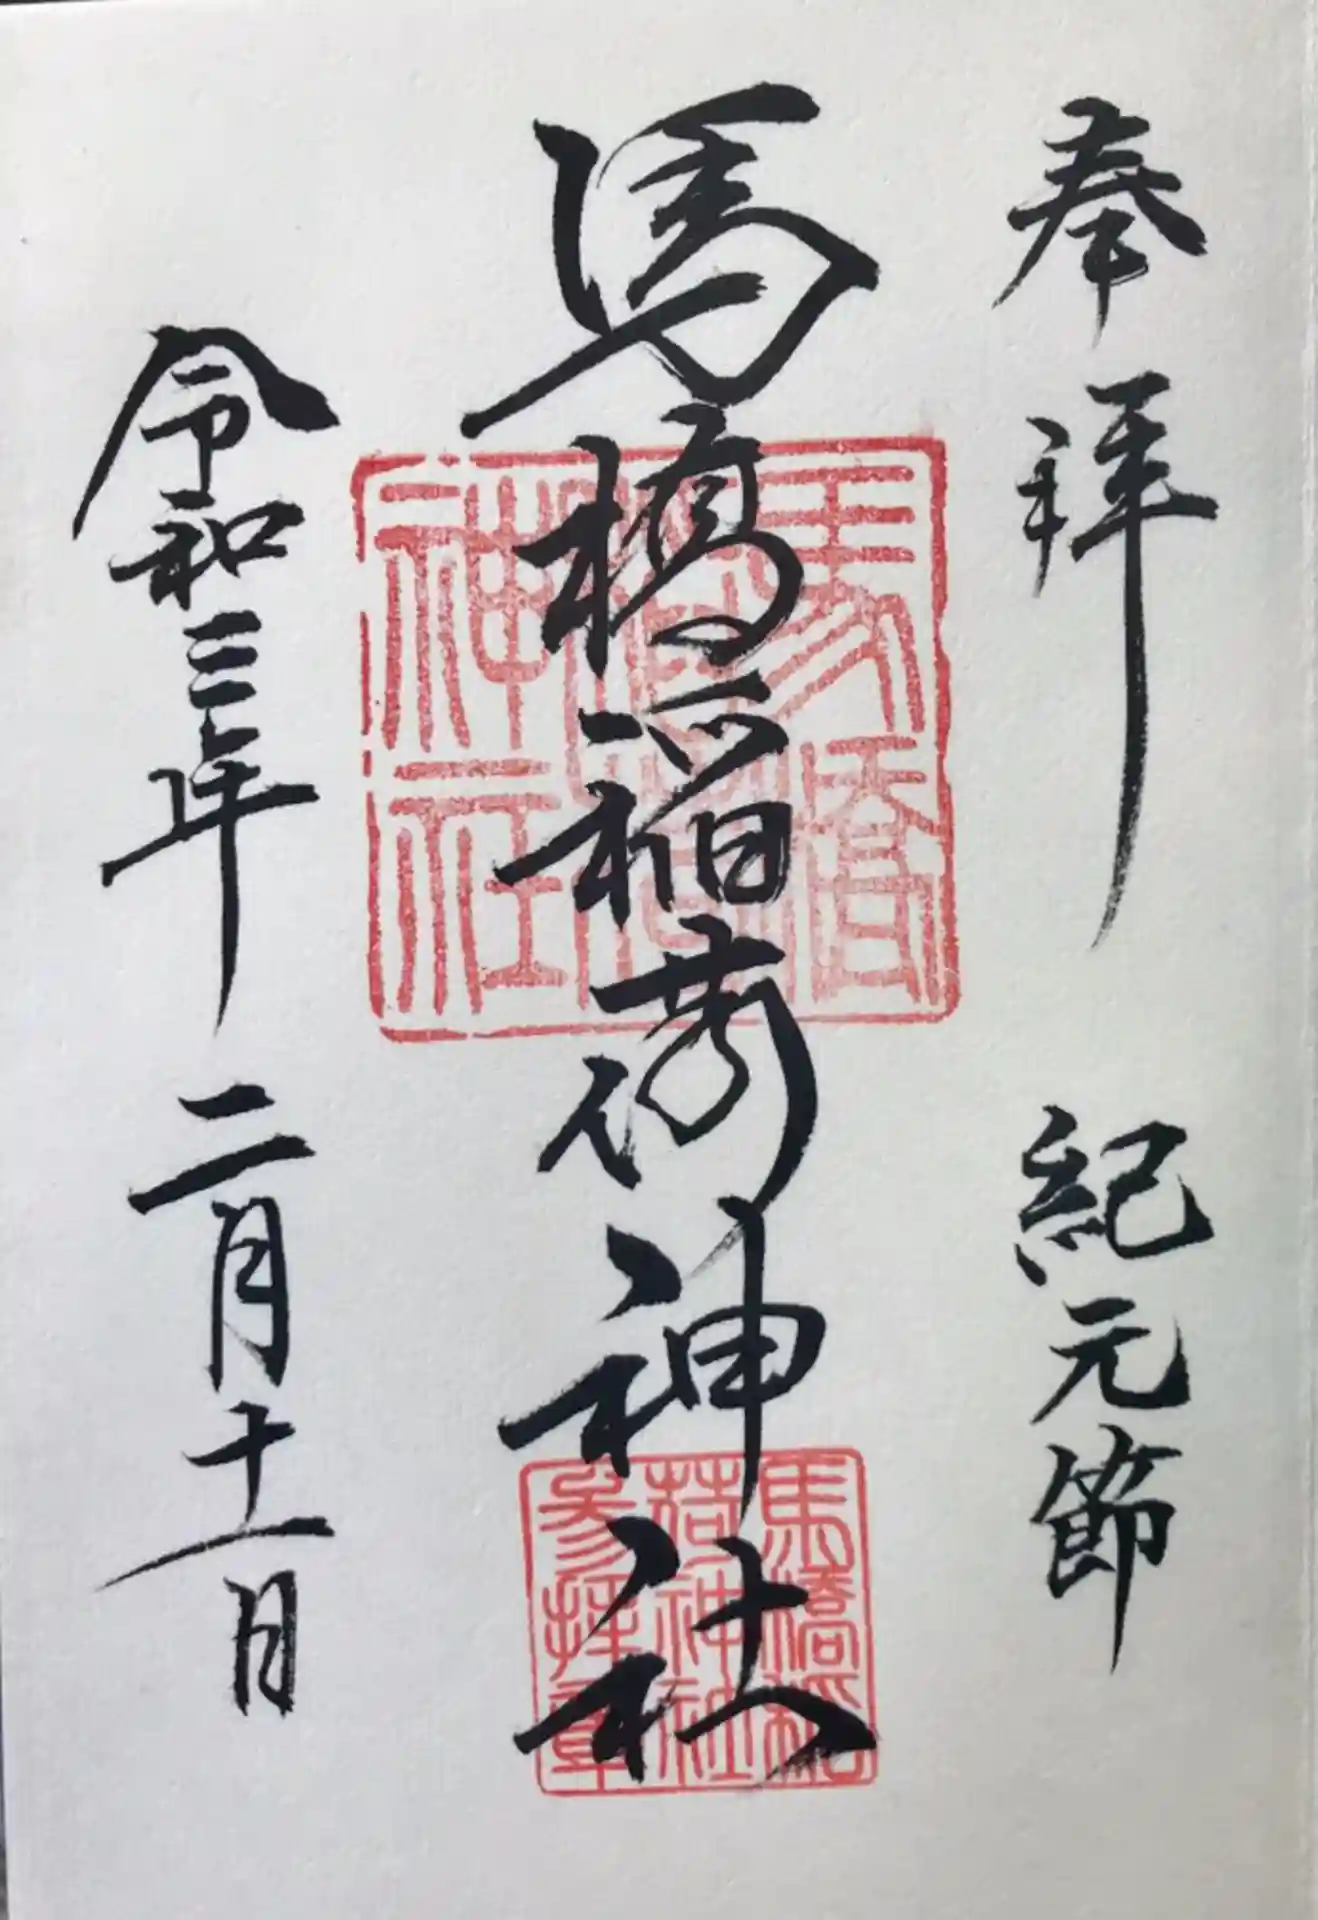 奉拝 紀元節
馬橋稲荷神社
令和三年 二月十一日
馬橋稲荷神社
馬橋稲
荷神社
参拝章